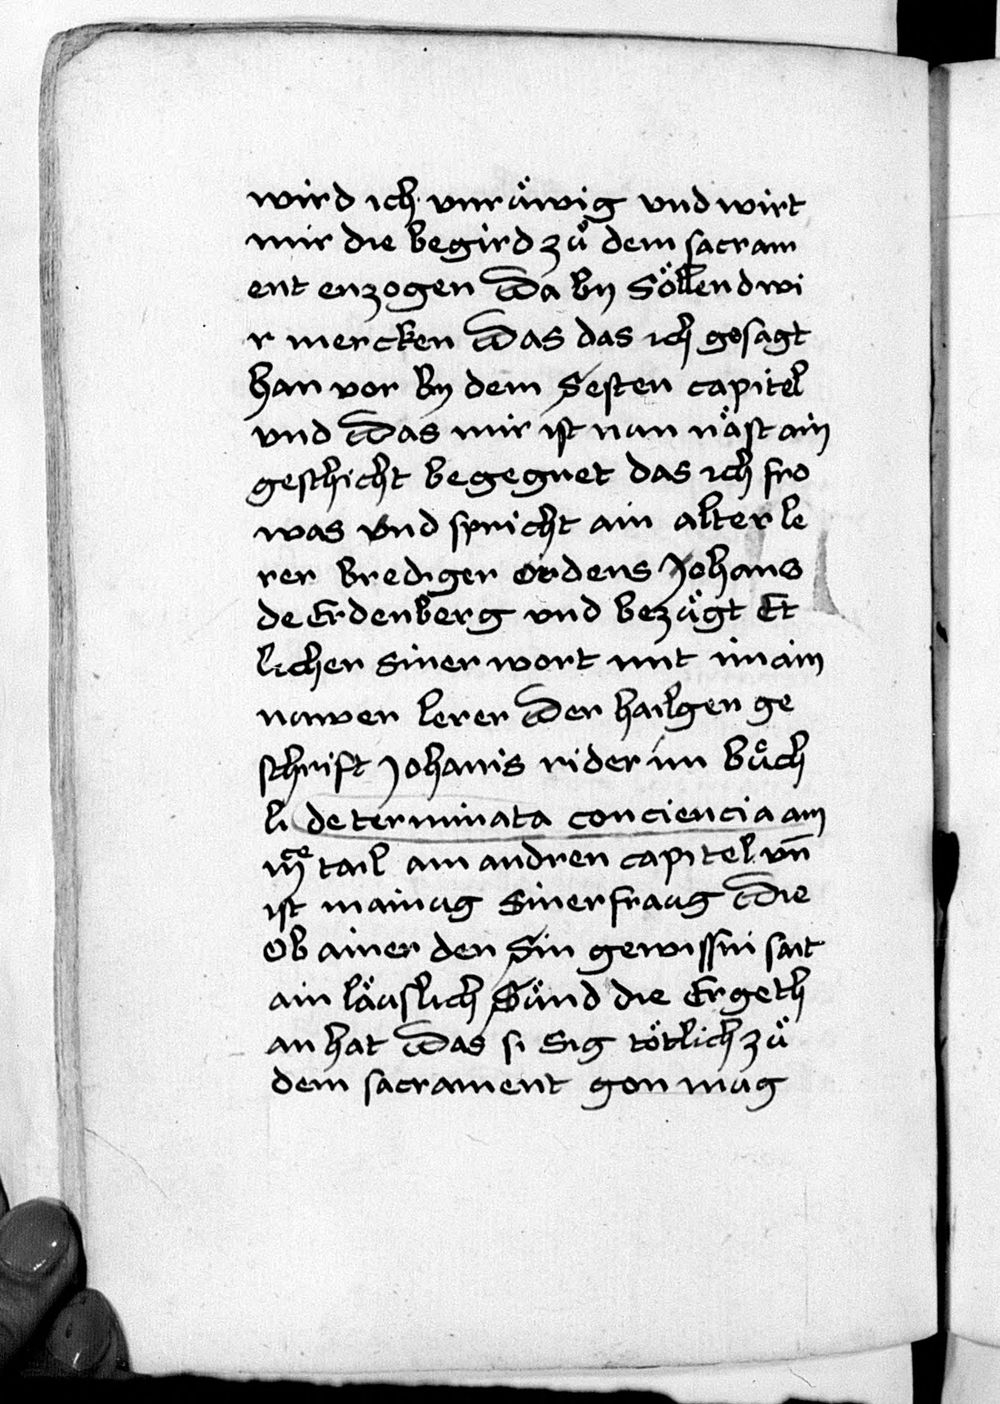 wird ich vnräwig vnd wirt
mir die begird zuͦ dem sacram
ent enzogen Da by Söllend wi
r mercken Das das ich gesagt
han vor by dem Sesten capitel
vnd Das mir ist nun näst ain
geschicht begegnet das ich fro
was vnd spricht ain alter le
rer brediger ordens Johans
de Erdenberg vnd bezügt Et
licher siner wort mit im ain
nuwen lerer Der hailgen ge
schrift Johanis nider im buͤch
li determinata conciencia am
iijͤ tail am andren capitel vn̄
ist mainug Siner fraug Die
Ob ainer den Sin gewissni sait
ain läuslich Sünd die Er geth
an hat Das si Sig tötlich zuͦ
dem sacrament gon mug